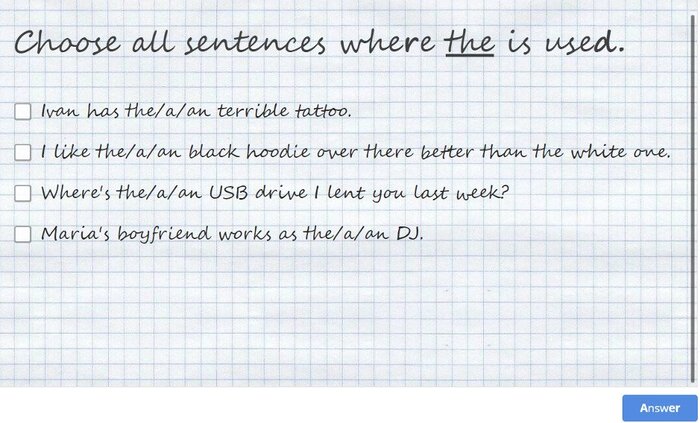 Choose all sentences where the is used.
Ivan has the/a/an terrible tattoo.
I like the/a/an black hoodie over there better than the white one.
Where's the/a/an USB drive I lent you last week?
Maria's boyfriend works as the/a/an DJ.
Answer